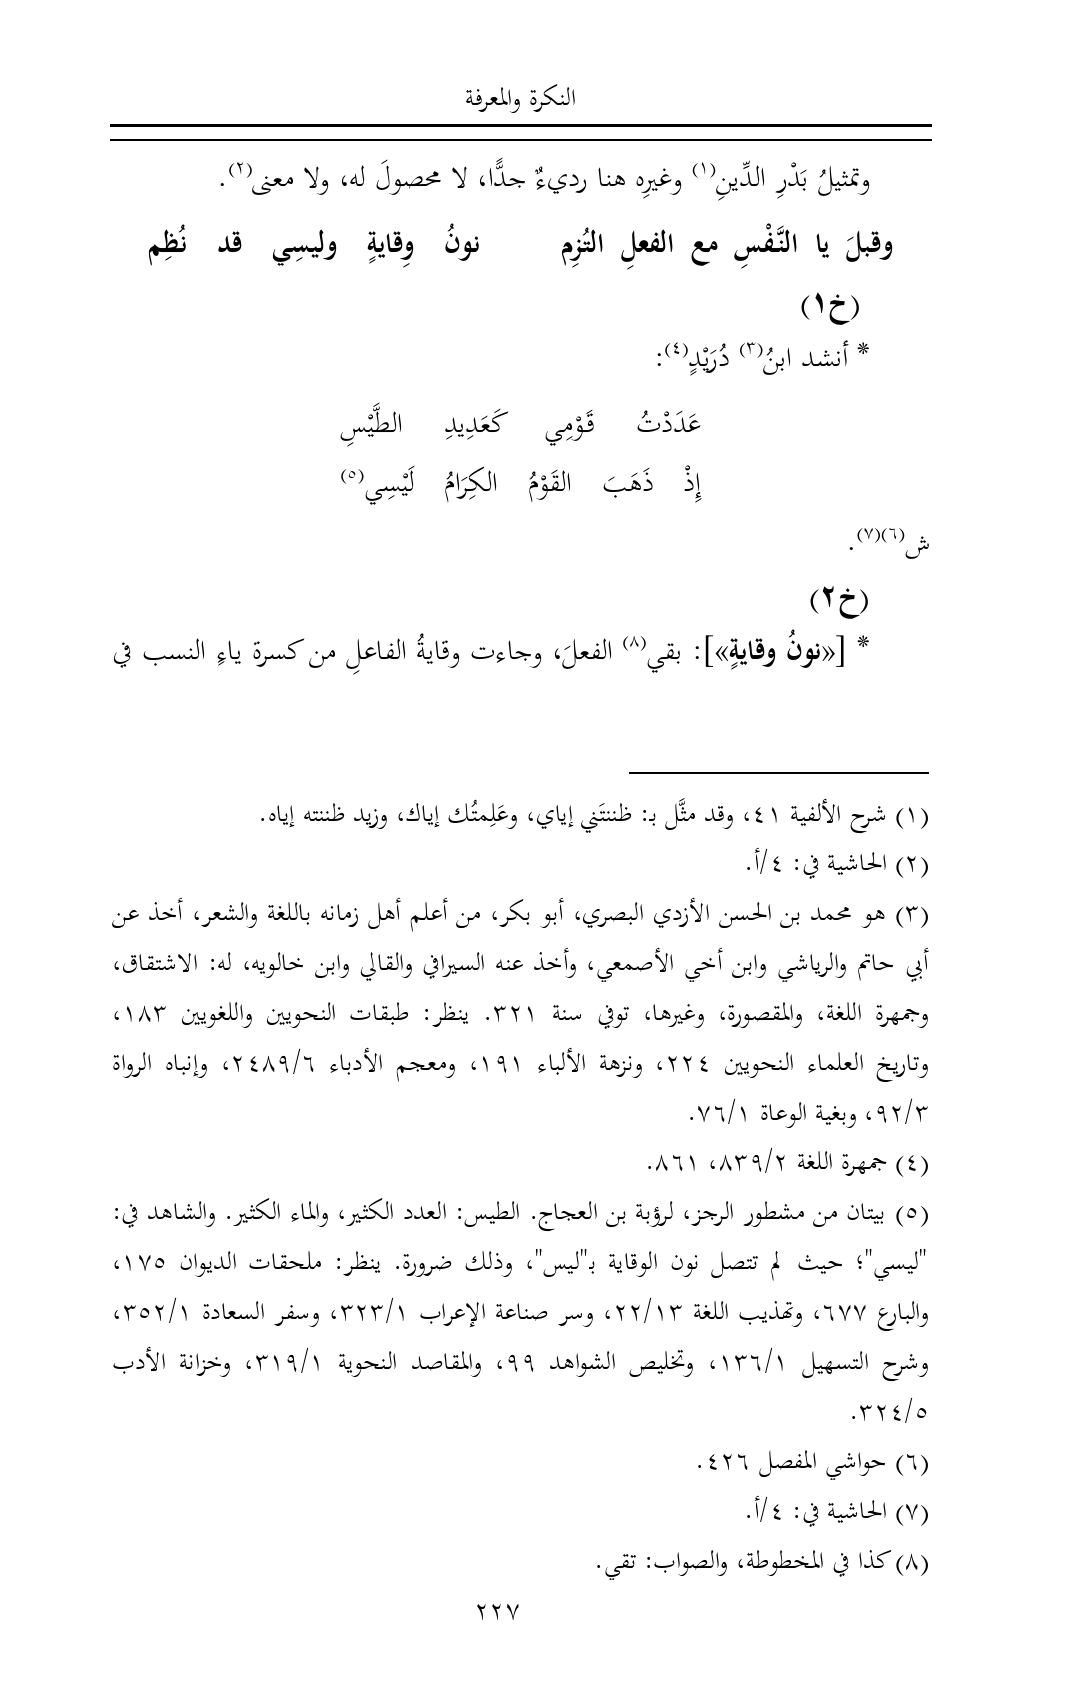 النكرة والمعرفة
وتمثيلُ بَدْرِ الدِّينِ(١) وغيرِه هنا رديءٌ جدًّا، لا محصولَ له، ولا معنى(٢).
وقبلَ يا النَّفْسِ مع الفعلِ التُزِم نونُ وِقايةٍ وليسِي قد نُظِم
(خ١)
* أنشد ابنُ(٣) دُرَيْدٍ(٤):
عَدَدْتُ قَوْمِي كَعَدِيدِ الطَّيْسِ
إِذْ ذَهَبَ القَوْمُ الكِرَامُ لَيْسِي(٥)
ش(٦)(٧).
(خ٢)
* [«نونُ وقايةٍ»]: بقي(٨) الفعلَ، وجاءت وقايةُ الفاعلِ من كسرة ياءِ النسب في
(١) شرح الألفية ٤١، وقد مثَّل بـ: ظننتَني إياي، وعَلِمتُك إياك، وزيد ظننته إياه.
(٢) الحاشية في: ٤/أ.
(٣) هو محمد بن الحسن الأزدي البصري، أبو بكر، من أعلم أهل زمانه باللغة والشعر، أخذ عن
أبي حاتم والرياشي وابن أخي الأصمعي، وأخذ عنه السيرافي والقالي وابن خالويه، له: الاشتقاق،
وجمهرة اللغة، والمقصورة، وغيرها، توفي سنة ٣٢١. ينظر: طبقات النحويين واللغويين ١٨٣،
وتاريخ العلماء النحويين ٢٢٤، ونزهة الألباء ١٩١، ومعجم الأدباء ٢٤٨٩/٦، وإنباه الرواة
٩٢/٣، وبغية الوعاة ٧٦/١.
(٤) جمهرة اللغة ٨٣٩/٢، ٨٦١.
(٥) بيتان من مشطور الرجز، لرؤبة بن العجاج. الطيس: العدد الكثير، والماء الكثير. والشاهد في:
"ليسي"؛ حيث لم تتصل نون الوقاية بـ"ليس"، وذلك ضرورة. ينظر: ملحقات الديوان ١٧٥،
والبارع ٦٧٧، وتهذيب اللغة ٢٢/١٣، وسر صناعة الإعراب ٣٢٣/١، وسفر السعادة ٣٥٢/١،
وشرح التسهيل ١٣٦/١، وتخليص الشواهد ٩٩، والمقاصد النحوية ٣١٩/١، وخزانة الأدب
٣٢٤/٥.
(٦) حواشي المفصل ٤٢٦.
(٧) الحاشية في: ٤/أ.
(٨) كذا في المخطوطة، والصواب: تقي.
٢٢٧